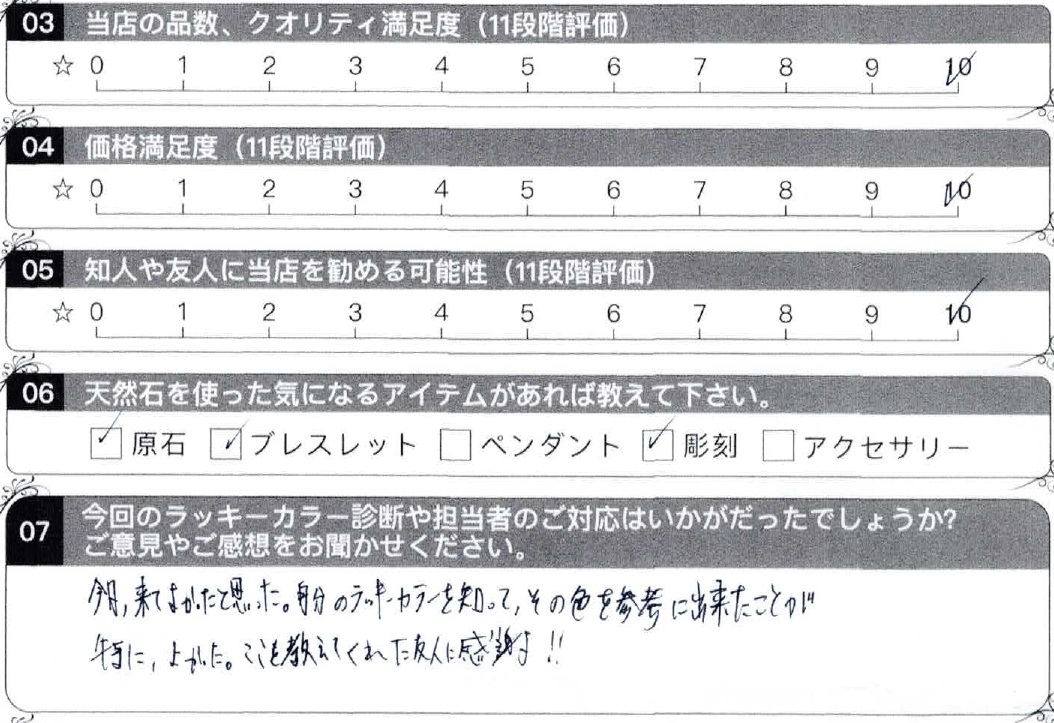 03 当店の品数、クオリティ満足度（11段階評価）
☆ 0 1 2 3 4 5 6 7 8 9 10
04 価格満足度（11段階評価）
☆ 0 1 2 3 4 5 6 7 8 9 10
05 知人や友人に当店を勧める可能性（11段階評価）
☆ 0 1 2 3 4 5 6 7 8 9 10
06 天然石を使った気になるアイテムがあれば教えて下さい。
☑ 原石 ☑ ブレスレット ☐ ペンダント ☑ 彫刻 ☐ アクセサリー
07 今回のラッキーカラー診断や担当者のご対応はいかがだったでしょうか?
ご意見やご感想をお聞かせください。
今日、来てよかったと思った。自分のラッキーカラーを知って、その色を参考に出来たことが
特に、よかった。ここを教えてくれた友人に感謝!!